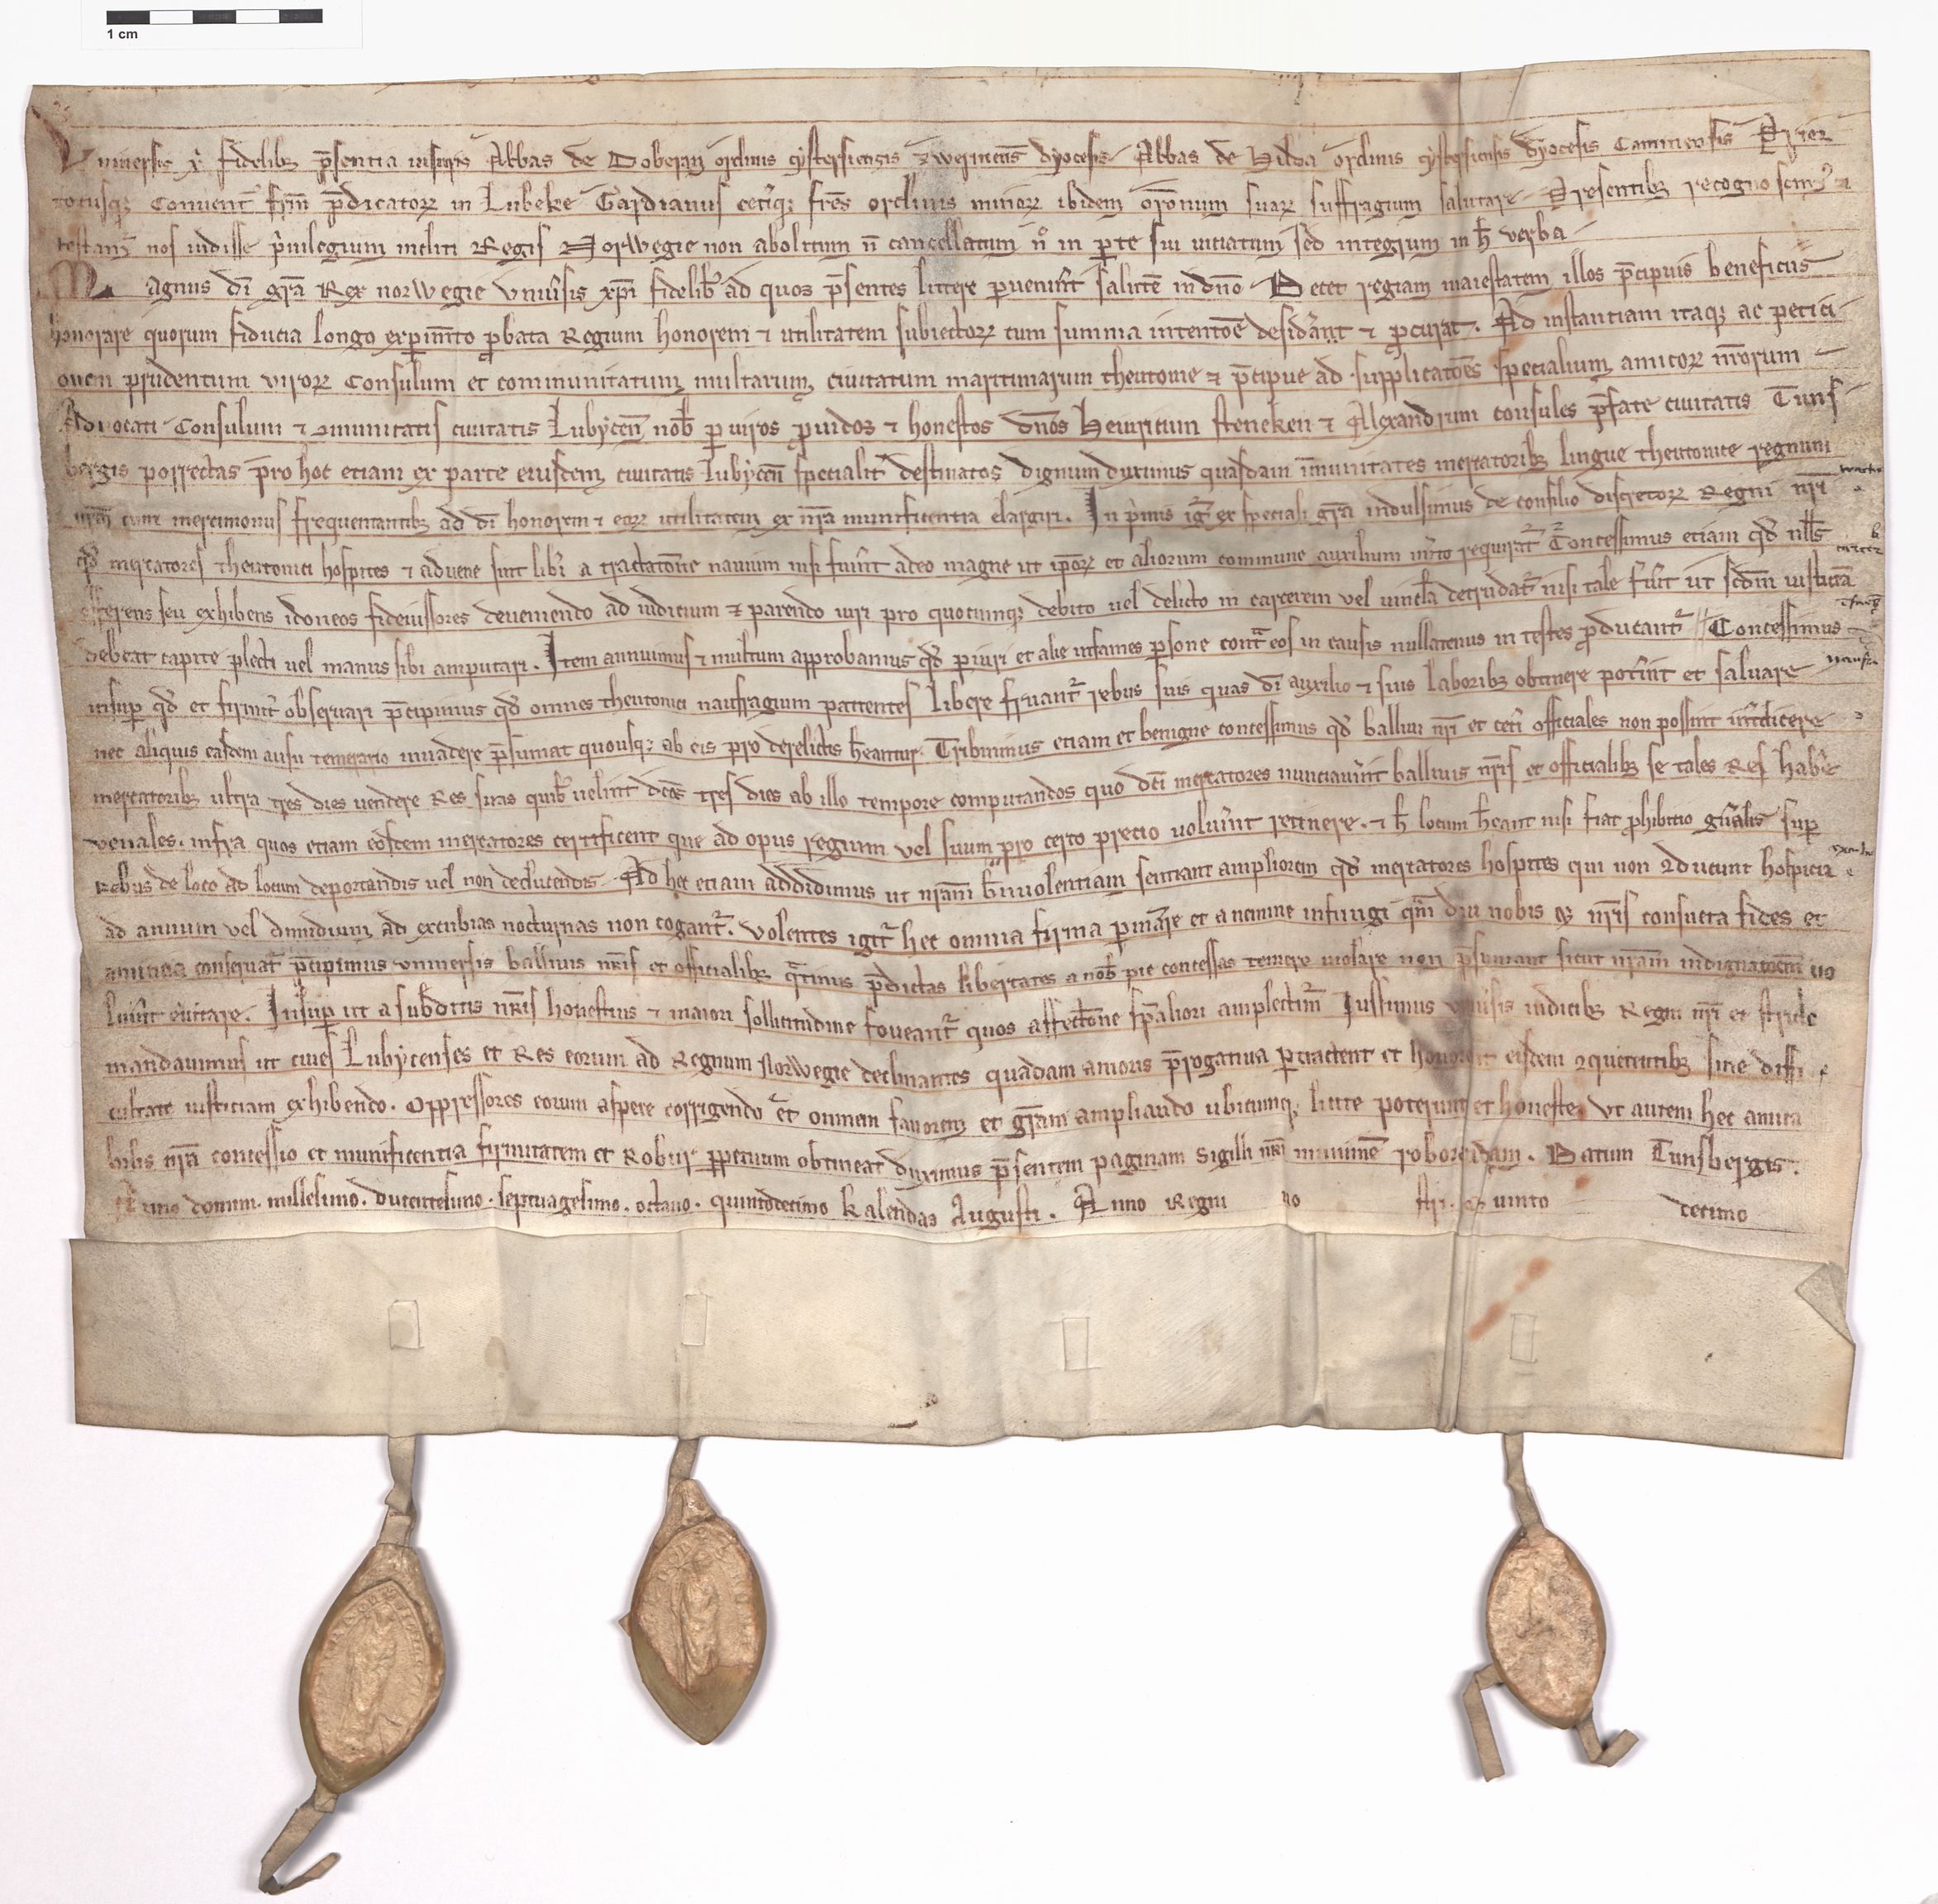 1 cm
Vniuersis xp̄i fidelibꝫ p̄sentia uisuris Abbas de Doberan ordinis cystersiensis zwerinens̄ dyocesis Abbas de Hilda ordinis cystersiensis dyocesis Camminensis Prior
totusqꝫ Conuent᷒ fr̄m p̄dicatorꝝ in Lubeke Gardianus ceteriqꝫ fr̄es ordinis minorꝝ ibidem or̄onum suarꝝ suffragium salutare Presentibꝫ recognoscim᷒ ⁊
testam᷒ nos uidisse p̄uilegium incliti Regis Norwegie non abolitum n̄ cancellatum n̄ in ꝑte sui uitiatum sed integrum in h̄ verba
Magnus dī gr̄a Rex norwegie vniũsis xp̄i fidelibꝫ ad quos p̄sentes littere ꝑuenerint salutē in dn̄o Decet regiam maiestatem illos p̄cipuis beneficiis
honorare quorum fiducia longo exꝑim̄to ꝓbata Regium honorem ⁊ utilitatem subiectorꝝ cum summa intentōe desiderant ⁊ ꝓcurāt. Ad instantiam itaqꝫ ac petici
onem prudentum virorꝝ Consulum et communitatum multarum ciuitatum maritimarum theutonie ⁊ p̄cipue ad supplicatōes specialium amicorꝝ nr̄orum
Aduocati Consulum ⁊ ꝯmunitatis ciuitatis Lubycen̄ nob̄ ꝑ uiros ꝓuidos ⁊ honestos dn̄os Heinricum steneken ⁊ Alexandrum consules p̄fate ciuitatis Tuns
bergis porrectas p̄ro hoc etiam ex parte eiusdem ciuitatis Lubycen̄ specialit̉ destinatos dignum duximus quasdam īmunitates mercatoribꝫ lingue theutonice regnum
nr̄m cum mercimoniis frequentantibꝫ ad dī honorem ⁊ eorꝝ utilitatem ex nr̄a munificentia elargiri. In p̄mis igr̄ ex speciali gr̄a indulsimus de consilio discretorꝝ Regni nr̄i
qd̄ mercatores theutonici hospites ⁊ aduene sint lib̄i a tractatōne nauium nisi fuerint adeo magne ut ip̄orꝝ et aliorum commune auxilium m̄ito requirat᷒ Concessimus etiam qd̄ null̄s
carcer
offerens seu exhibens idoneos fideiussores deueniendo ad iudicium ⁊ parendo iuri pro quocumqꝫ debito uel delicto in carcerem vel uincl̄a detrudat᷒ nisi tale fuerit ut scd̄m iusticiā
debeat capite plecti uel manus sibi amputari. Item annuimus ⁊ multum approbamus qd̄ ꝑiuri et alie infames ꝑsone cont̄ eos in causis nullatenus in testes ꝓducant᷒ // Concessimus
insuꝑ qd̄ et firmit̉ obseruari p̄cipimus qd̄ omnes theutonici naufragium patientes libere fruant᷒ rebus suis quas dī auxilio ⁊ suis laboribꝫ obtinere potuerint et saluare
nec aliquis easdem ausu temerario inuadere p̄sumat quousqꝫ ab eis pro derelictis h̄eantur. Tribuimus etiam et benigne concessimus qd̄ balliui nr̄i et cet̉i officiales non possint int̉dicere
mercatoribꝫ ultra tres dies uendere Res suas quibꝫ uelint dc̄os tres dies ab illo tempore computandos quo dc̄i mercatores nunciauerint balliuis nr̄is et officialibꝫ se tales Res habere
venales. infra quos etiam eosdem mercatores certificent que ad opus regium vel suum pro certo precio uoluerint retinere. ⁊ h̄ locum h̄eant nisi fiat ꝓhibitio gn̄alis suꝑ
Rebus de loco ad locum deportandis uel non deducendis Ad hec etiam addidimus ut nr̄am b̄niuolentiam sentiant ampliorem qd̄ mercatores hospites qui non ꝯducunt hospicia
ad annum vel dimidium ad excubias nocturnas non cogant᷒. Volentes igit᷒ hec omnia firma ꝑmanere et a nemine infringi qm̄ diu nobis ⁊ nr̄is consueta fides et
amicicia conseruat᷒ p̄cipimus vniuersis balliuis nr̄is et officialibꝫ q̄tinus p̄dictas libertates a nob̄ pie concessas temere uiolare non p̄sumant sicut nr̄am indignatōem uo
luerint euitare. Insuꝑ ut a subditis nr̄is honestius ⁊ maiori sollicitudine foueant᷒ quos affectōne sp̄aliori amplectim᷒ Iussimus vniũsis iudicibꝫ Regni nr̄i et stricte
mandauimus ut ciues Lubycenses et Res eorum ad Regnum Norwegie declinantes quadam amoris p̄rogatiua ꝑtractent et honorent eisdem ꝯquerentibꝫ sine diffi
cultate iusticiam exhibendo. Oppressores eorum aspere corrigendo et omnem fauorem et gr̄am ampliando ubicumqꝫ licite poterunt et honeste. Vt autem hec amica
bilis nr̄a concessio et munificentia firmitatem et Robur ꝑpetuum obtineat duximus p̄sentem paginam Sigilli nr̄i munimē roborandam. Datum Tunsbergis.
Anno domini. millesimo. ducentesimo. septuagesimo. octauo. quintodecimo kalendas Augusti. Anno Regni no stri. Quinto decimo